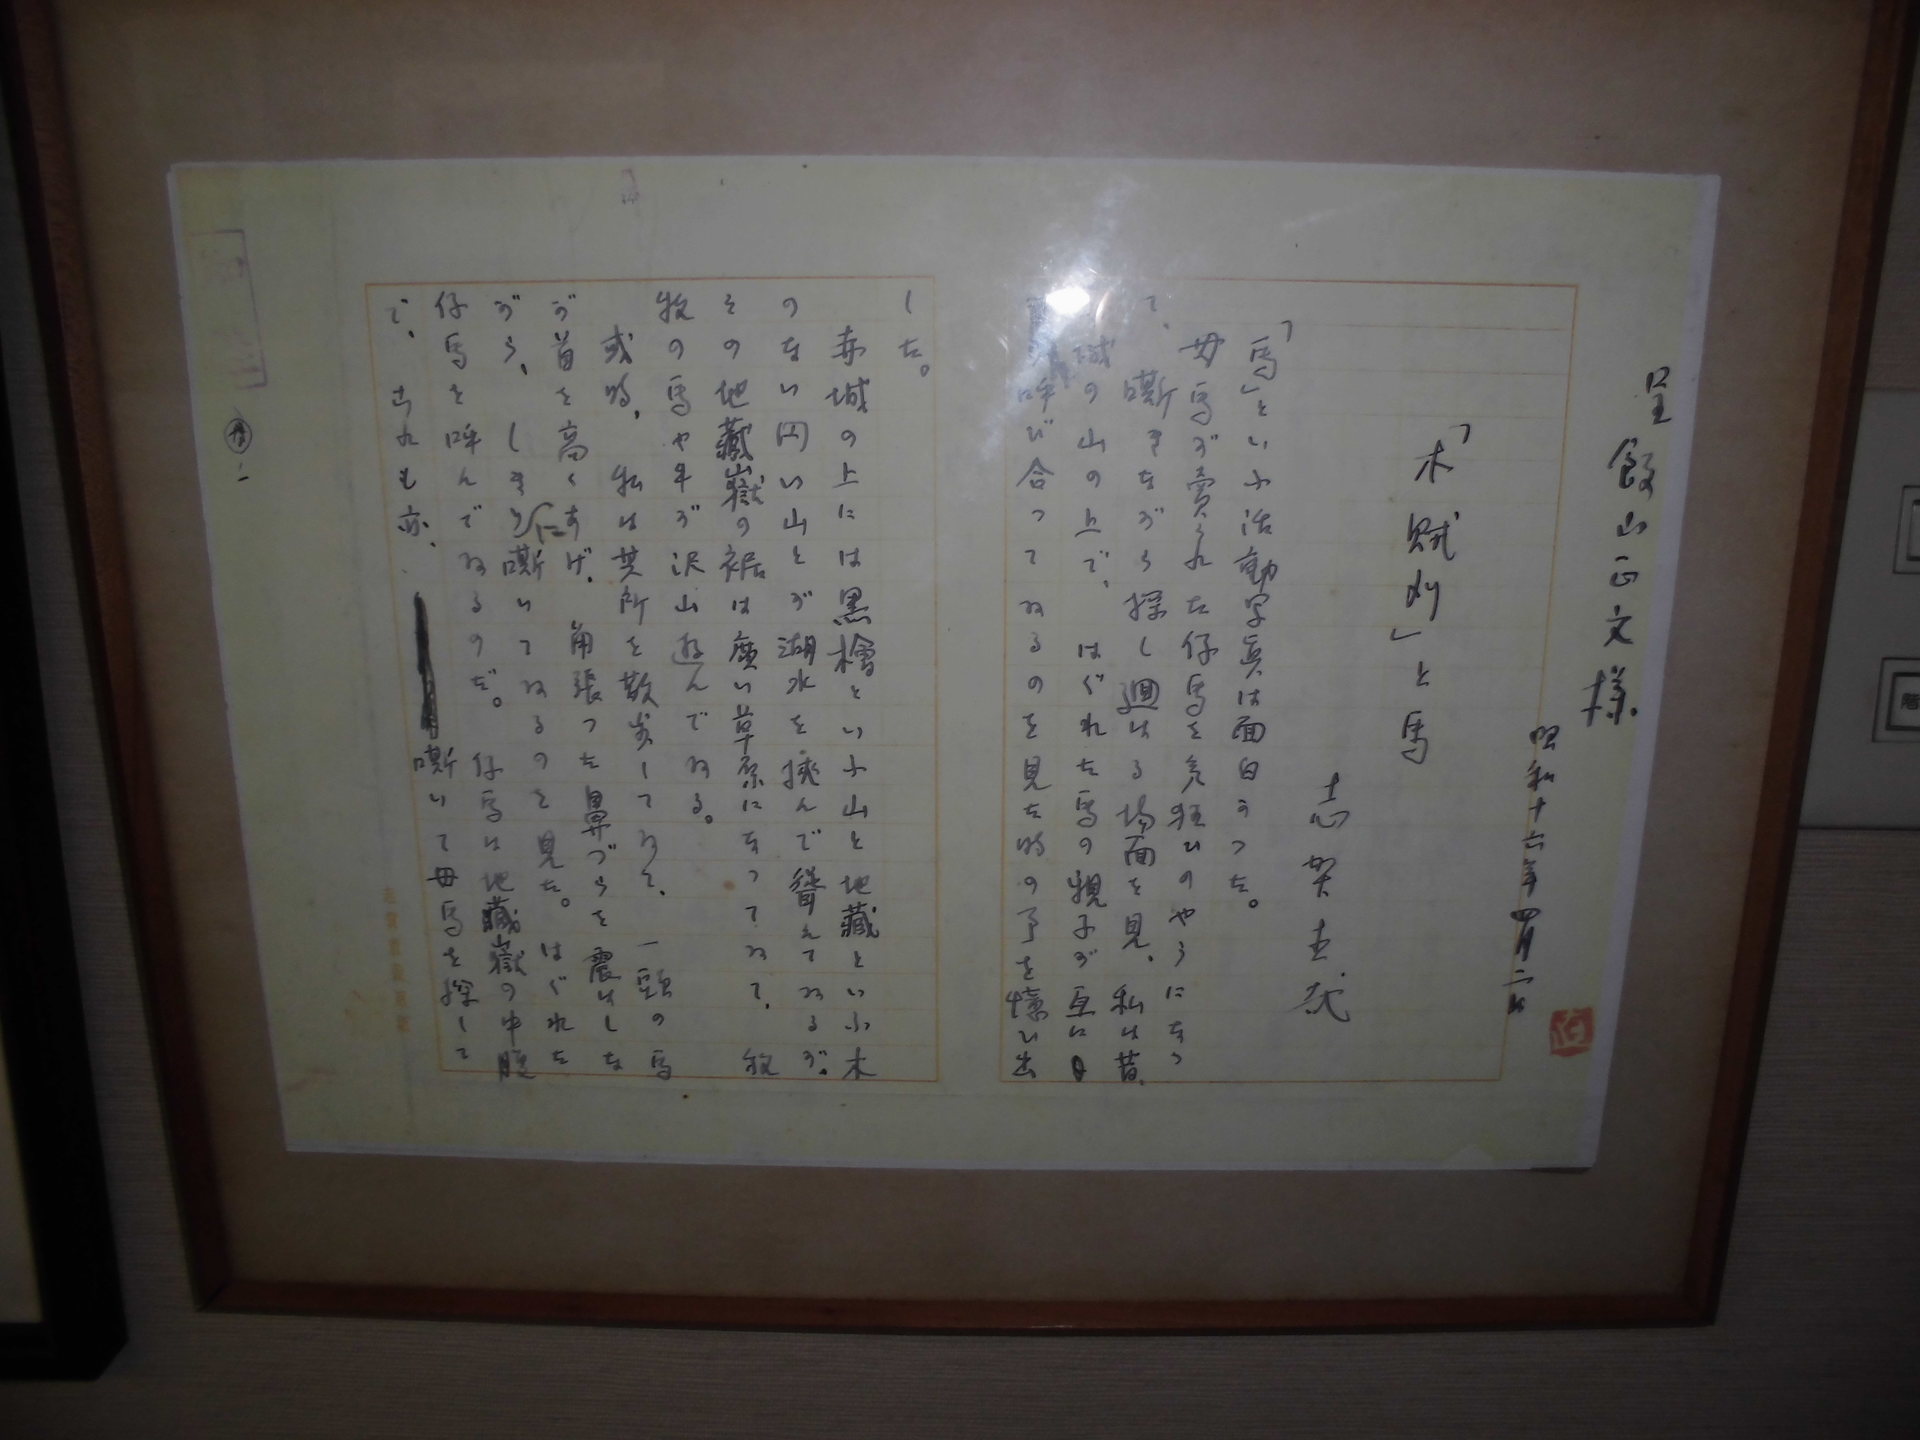 呈
飯山正文様
昭和十六年四月二日
「木賊刈」と馬
志賀直哉
「馬」といふ活動写真は面白かつた。
母馬が売られた仔馬を気狂ひのやうになつ
て、嘶きながら探し廻はる場面を見、私は昔、
城の山の上で、はぐれた馬の親子が互に
呼び合つてゐるのを見た時の事を憶ひ出
した。
赤城の上には黒檜といふ山と地蔵といふ木
のない円い山とが湖水を挟んで聳えてゐるが、
その地蔵嶽の裾は広い草原になつてゐて、放
牧の馬や牛が沢山遊んでゐる。
或時、私は其所を散歩してゐて、一頭の馬
が首を高くあげ、角張つた鼻づらを震はしな
がら、しきりに嘶いてゐるのを見た。はぐれた
仔馬を呼んでゐるのだ。仔馬は地蔵嶽の中腹
で、これも亦、嘶いて母馬を探して
志賀直哉原稿
階